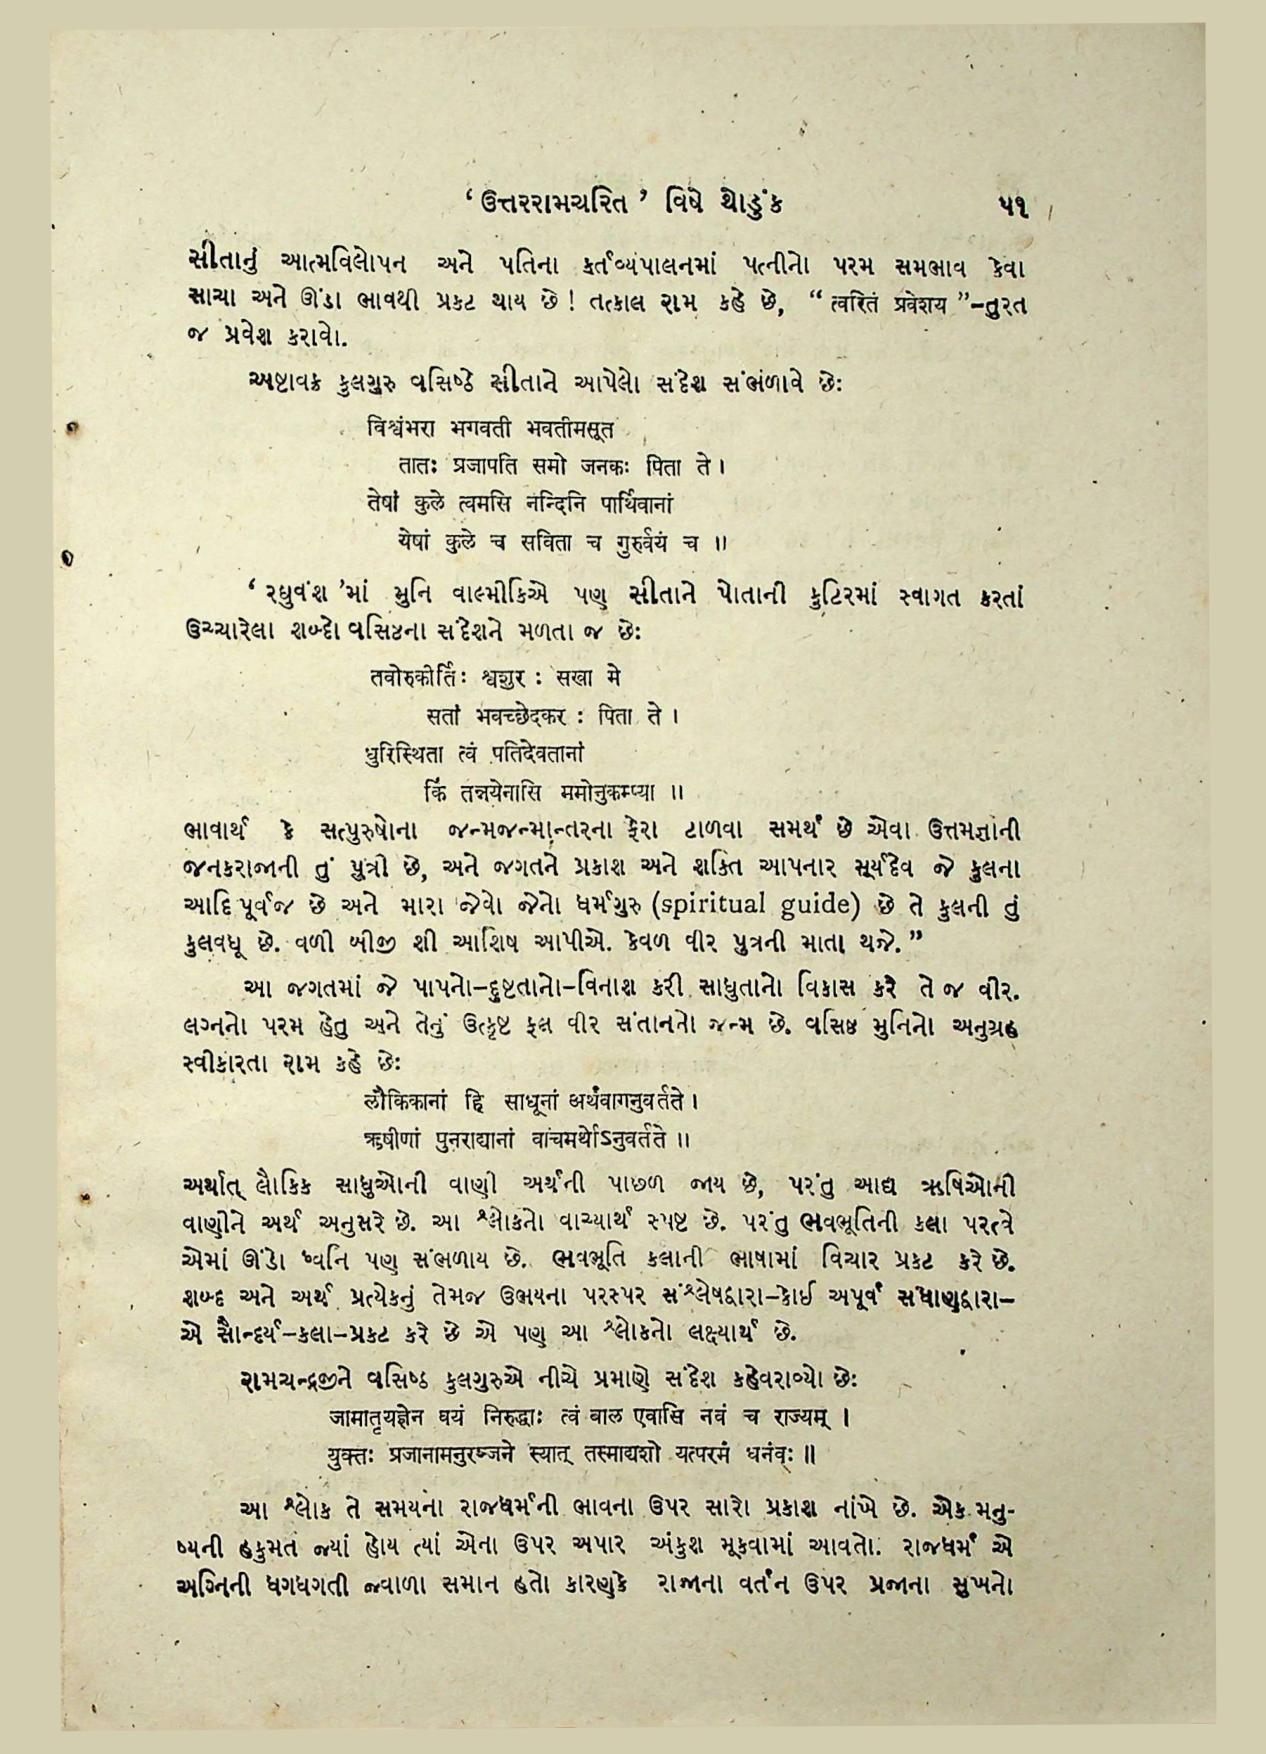 ‘ ઉત્તરરામચરિત ’ વિષે થોડુંક ૫૧
સીતાનું આત્મવિલોપન અને પતિના કર્તવ્યપાલનમાં પત્નીનો પરમ સમભાવ કેવા
સાચા અને ઊંડા ભાવથી પ્રકટ થાય છે ! તત્કાલ રામ કહે છે, “ त्वरितं प्रवेशय ”–તુરત
જ પ્રવેશ કરાવો.
અષ્ટાવક્ર કુલગુરુ વસિષ્ઠે સીતાને આપેલો સંદેશ સંભળાવે છેઃ
विश्वंभरा भगवती भवतीमसूत
तातः प्रजापति समो जनकः पिता ते ।
तेषां कुले त्वमसि नन्दिनि पार्थिवानां
येषां कुले च सविता च गुरुर्वयं च ॥
‘ રઘુવંશ ’માં મુનિ વાલ્મીકિએ પણ સીતાને પોતાની કુટિરમાં સ્વાગત કરતાં
ઉચ્ચારેલા શબ્દો વસિષ્ઠના સંદેશને મળતા જ છેઃ
तवोरुकीर्तिः श्वशुर : सखा मे
सतां भवच्छेदकर : पिता ते ।
धुरिस्थिता त्वं पतिदेवतानां
किं तन्नयेनासि ममोनुकम्प्या ॥
ભાવાર્થ કે સત્પુરુષોના જન્મજન્માન્તરના ફેરા ટાળવા સમર્થ છે એવા ઉત્તમજ્ઞાની
જનકરાજાની તું પુત્રી છે, અને જગતને પ્રકાશ અને શક્તિ આપનાર સૂર્યદેવ જે કુલના
આદિ પૂર્વજ છે અને મારા જેવો જેનો ધર્મગુરુ (spiritual guide) છે તે કુલની તું
કુલવધૂ છે. વળી બીજી શી આશિષ આપીએ. કેવળ વીર પુત્રની માતા થજે.”
આ જગતમાં જે પાપનો–દુષ્ટતાનો–વિનાશ કરી સાધુતાનો વિકાસ કરે તે જ વીર.
લગ્નનો પરમ હેતુ અને તેનું ઉત્કૃષ્ટ ફલ વીર સંતાનનો જન્મ છે. વસિષ્ઠ મુનિનો અનુગ્રહ
સ્વીકારતા રામ કહે છેઃ
लौकिकानां हि साधूनां अर्थंवागनुवर्तते ।
ऋषीणां पुनराद्यानां वाचमर्थोऽनुवर्तते ॥
અર્થાત્ લૌકિક સાધુઓની વાણી અર્થની પાછળ જાય છે, પરંતુ આદ્ય ઋષિઓની
વાણીને અર્થ અનુસરે છે. આ શ્લોકનો વાચ્યાર્થ સ્પષ્ટ છે. પરંતુ ભવભૂતિની કલા પરત્વે
એમાં ઊંડો ધ્વનિ પણ સંભળાય છે. ભવભૂતિ કલાની ભાષામાં વિચાર પ્રકટ કરે છે.
શબ્દ અને અર્થ પ્રત્યેકનું તેમજ ઉભયના પરસ્પર સંશ્લેષદ્વારા–કોઈ અપૂર્વ સંધાણદ્વારા–
એ સૌન્દર્ય–કલા–પ્રકટ કરે છે એ પણ આ શ્લોકનો લક્ષ્યાર્થ છે.
રામચન્દ્રજીને વસિષ્ઠ કુલગુરુએ નીચે પ્રમાણે સંદેશ કહેવરાવ્યો છેઃ
जामातृयज्ञेन वयं निरुद्धाः त्वं बाल एवासि नवं च राज्यम् ।
युक्तः प्रजानामनुरञ्जने स्यात् तस्माद्यशो यत्परमं धनंवः ॥
આ શ્લોક તે સમયના રાજધર્મની ભાવના ઉપર સારો પ્રકાશ નાંખે છે. એક મનુ-
ષ્યની હકુમત જ્યાં હોય ત્યાં એના ઉપર અપાર અંકુશ મૂકવામાં આવતો. રાજધર્મ એ
અગ્નિની ધગધગતી જ્વાળા સમાન હતો કારણકે રાજાના વર્તન ઉપર પ્રજાના સુખનો